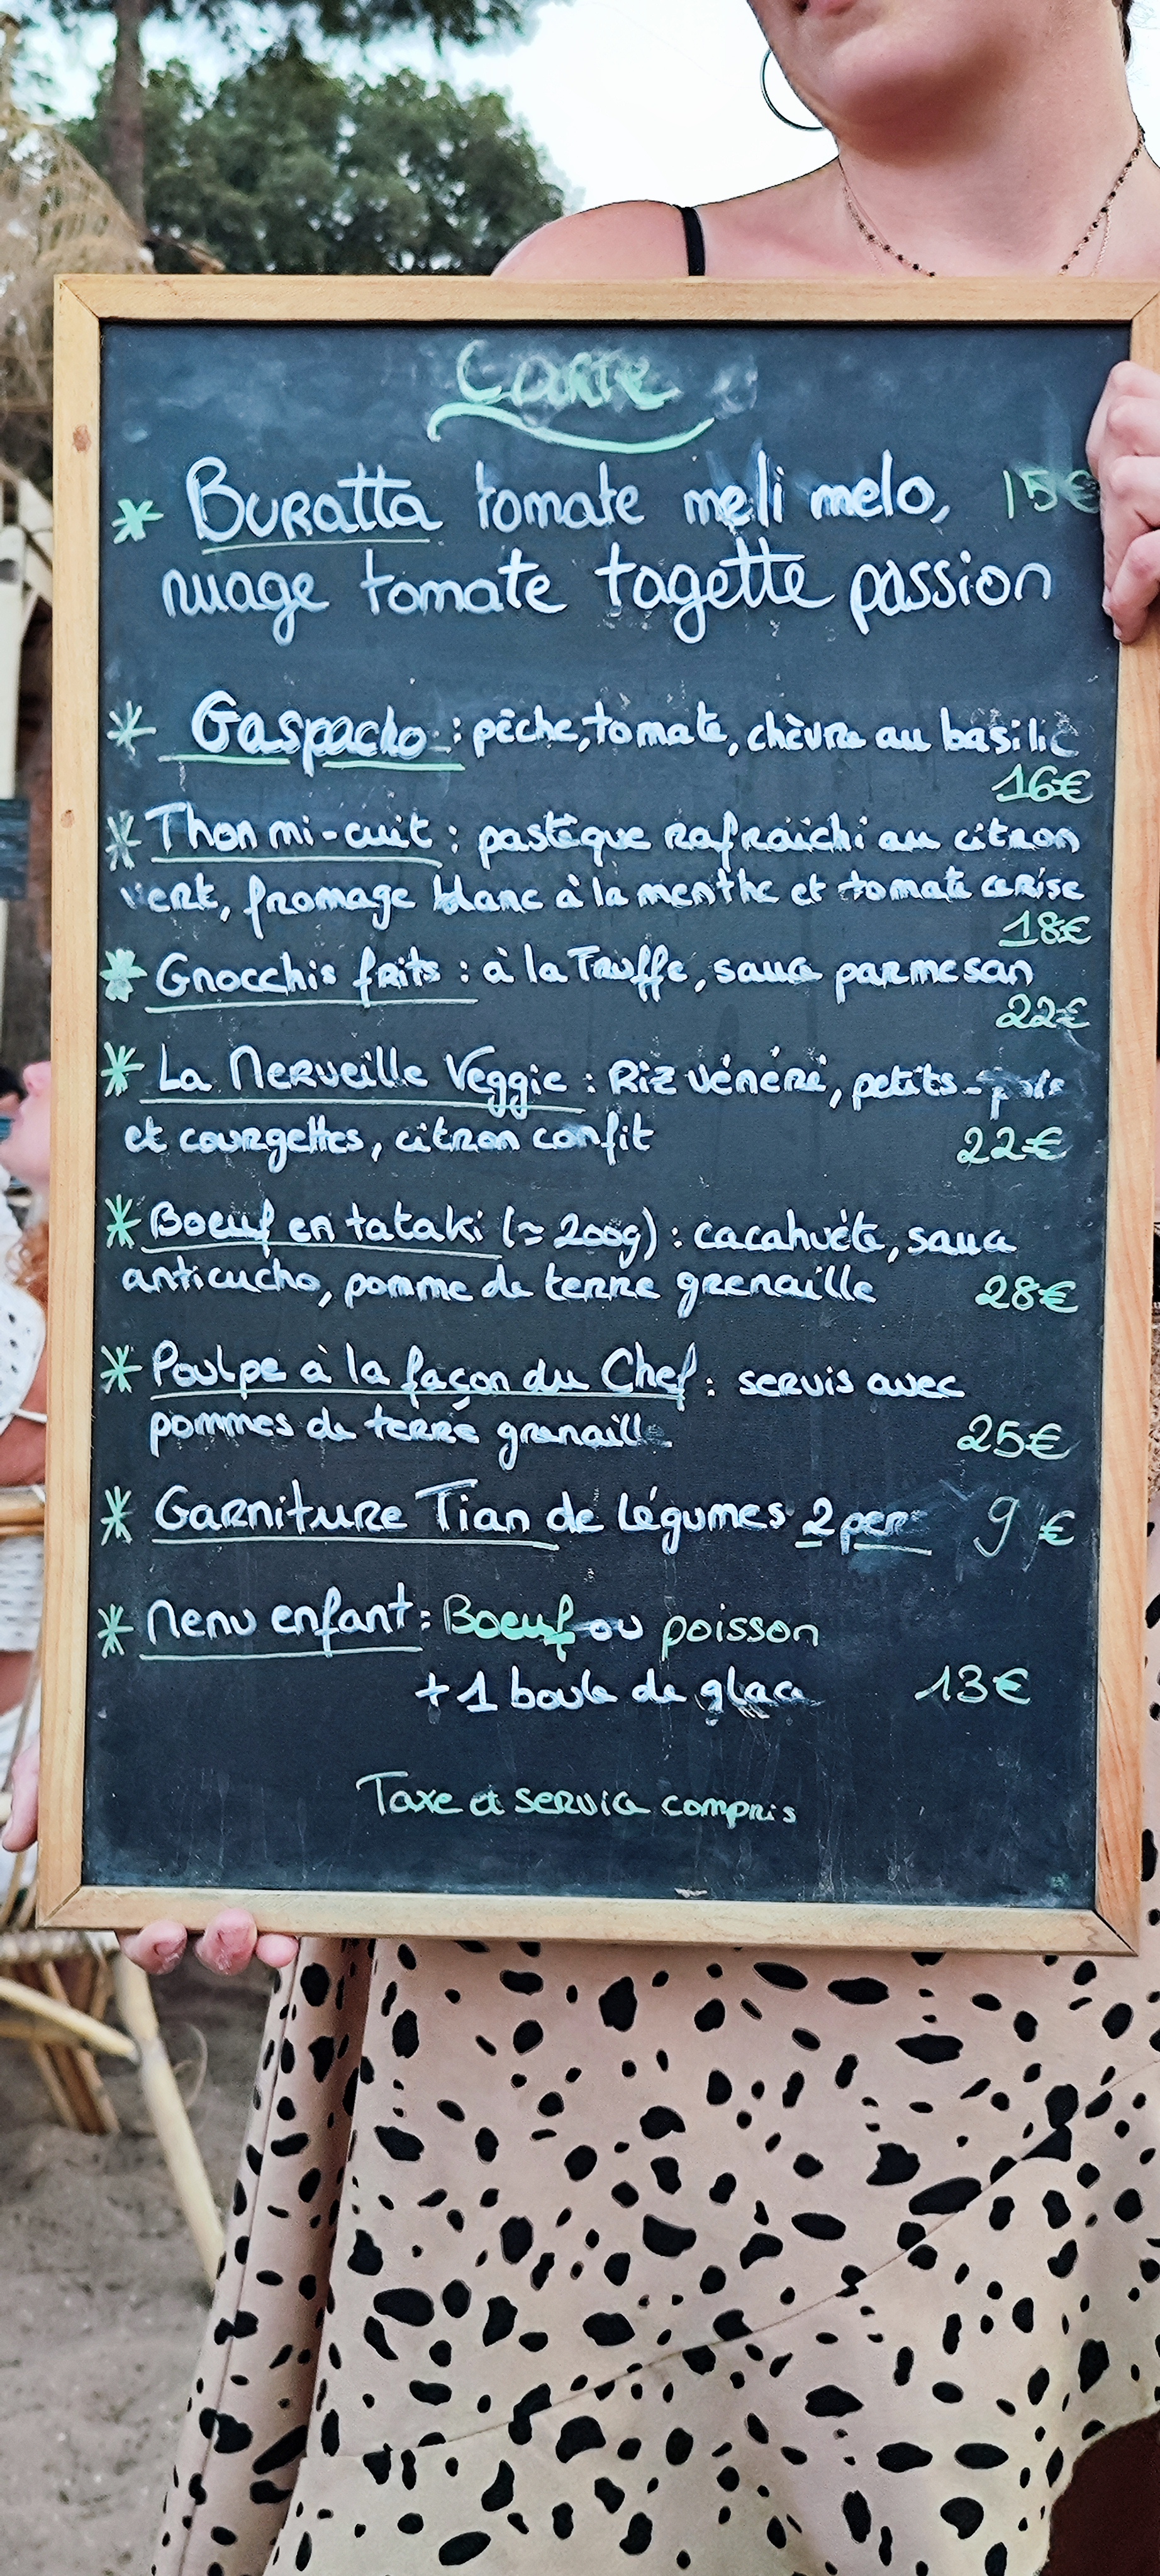 Carte
* Buratta tomate meli melo, 15€
nuage tomate tagette passion
* Gaspacho : pêche, tomate, chèvre au basilic
16€
* Thon mi-cuit : pastèque rafraîchi au citron
vert, fromage blanc à la menthe et tomate cerise
18€
* Gnocchis frits : à la Truffe, sauce parmesan
22€
* La Merveille Veggie : Riz vénéré, petits-pois
et courgettes, citron confit 22€
* Boeuf en tataki (≈ 200g) : cacahuète, sauce
anticucho, pomme de terre grenaille 28€
* Poulpe à la façon du Chef : servis avec
pommes de terre grenaille 25€
* Garniture Tian de légumes 2 pers 9 €
* Menu enfant : Boeuf ou poisson
+ 1 boule de glace 13€
Taxe et service compris